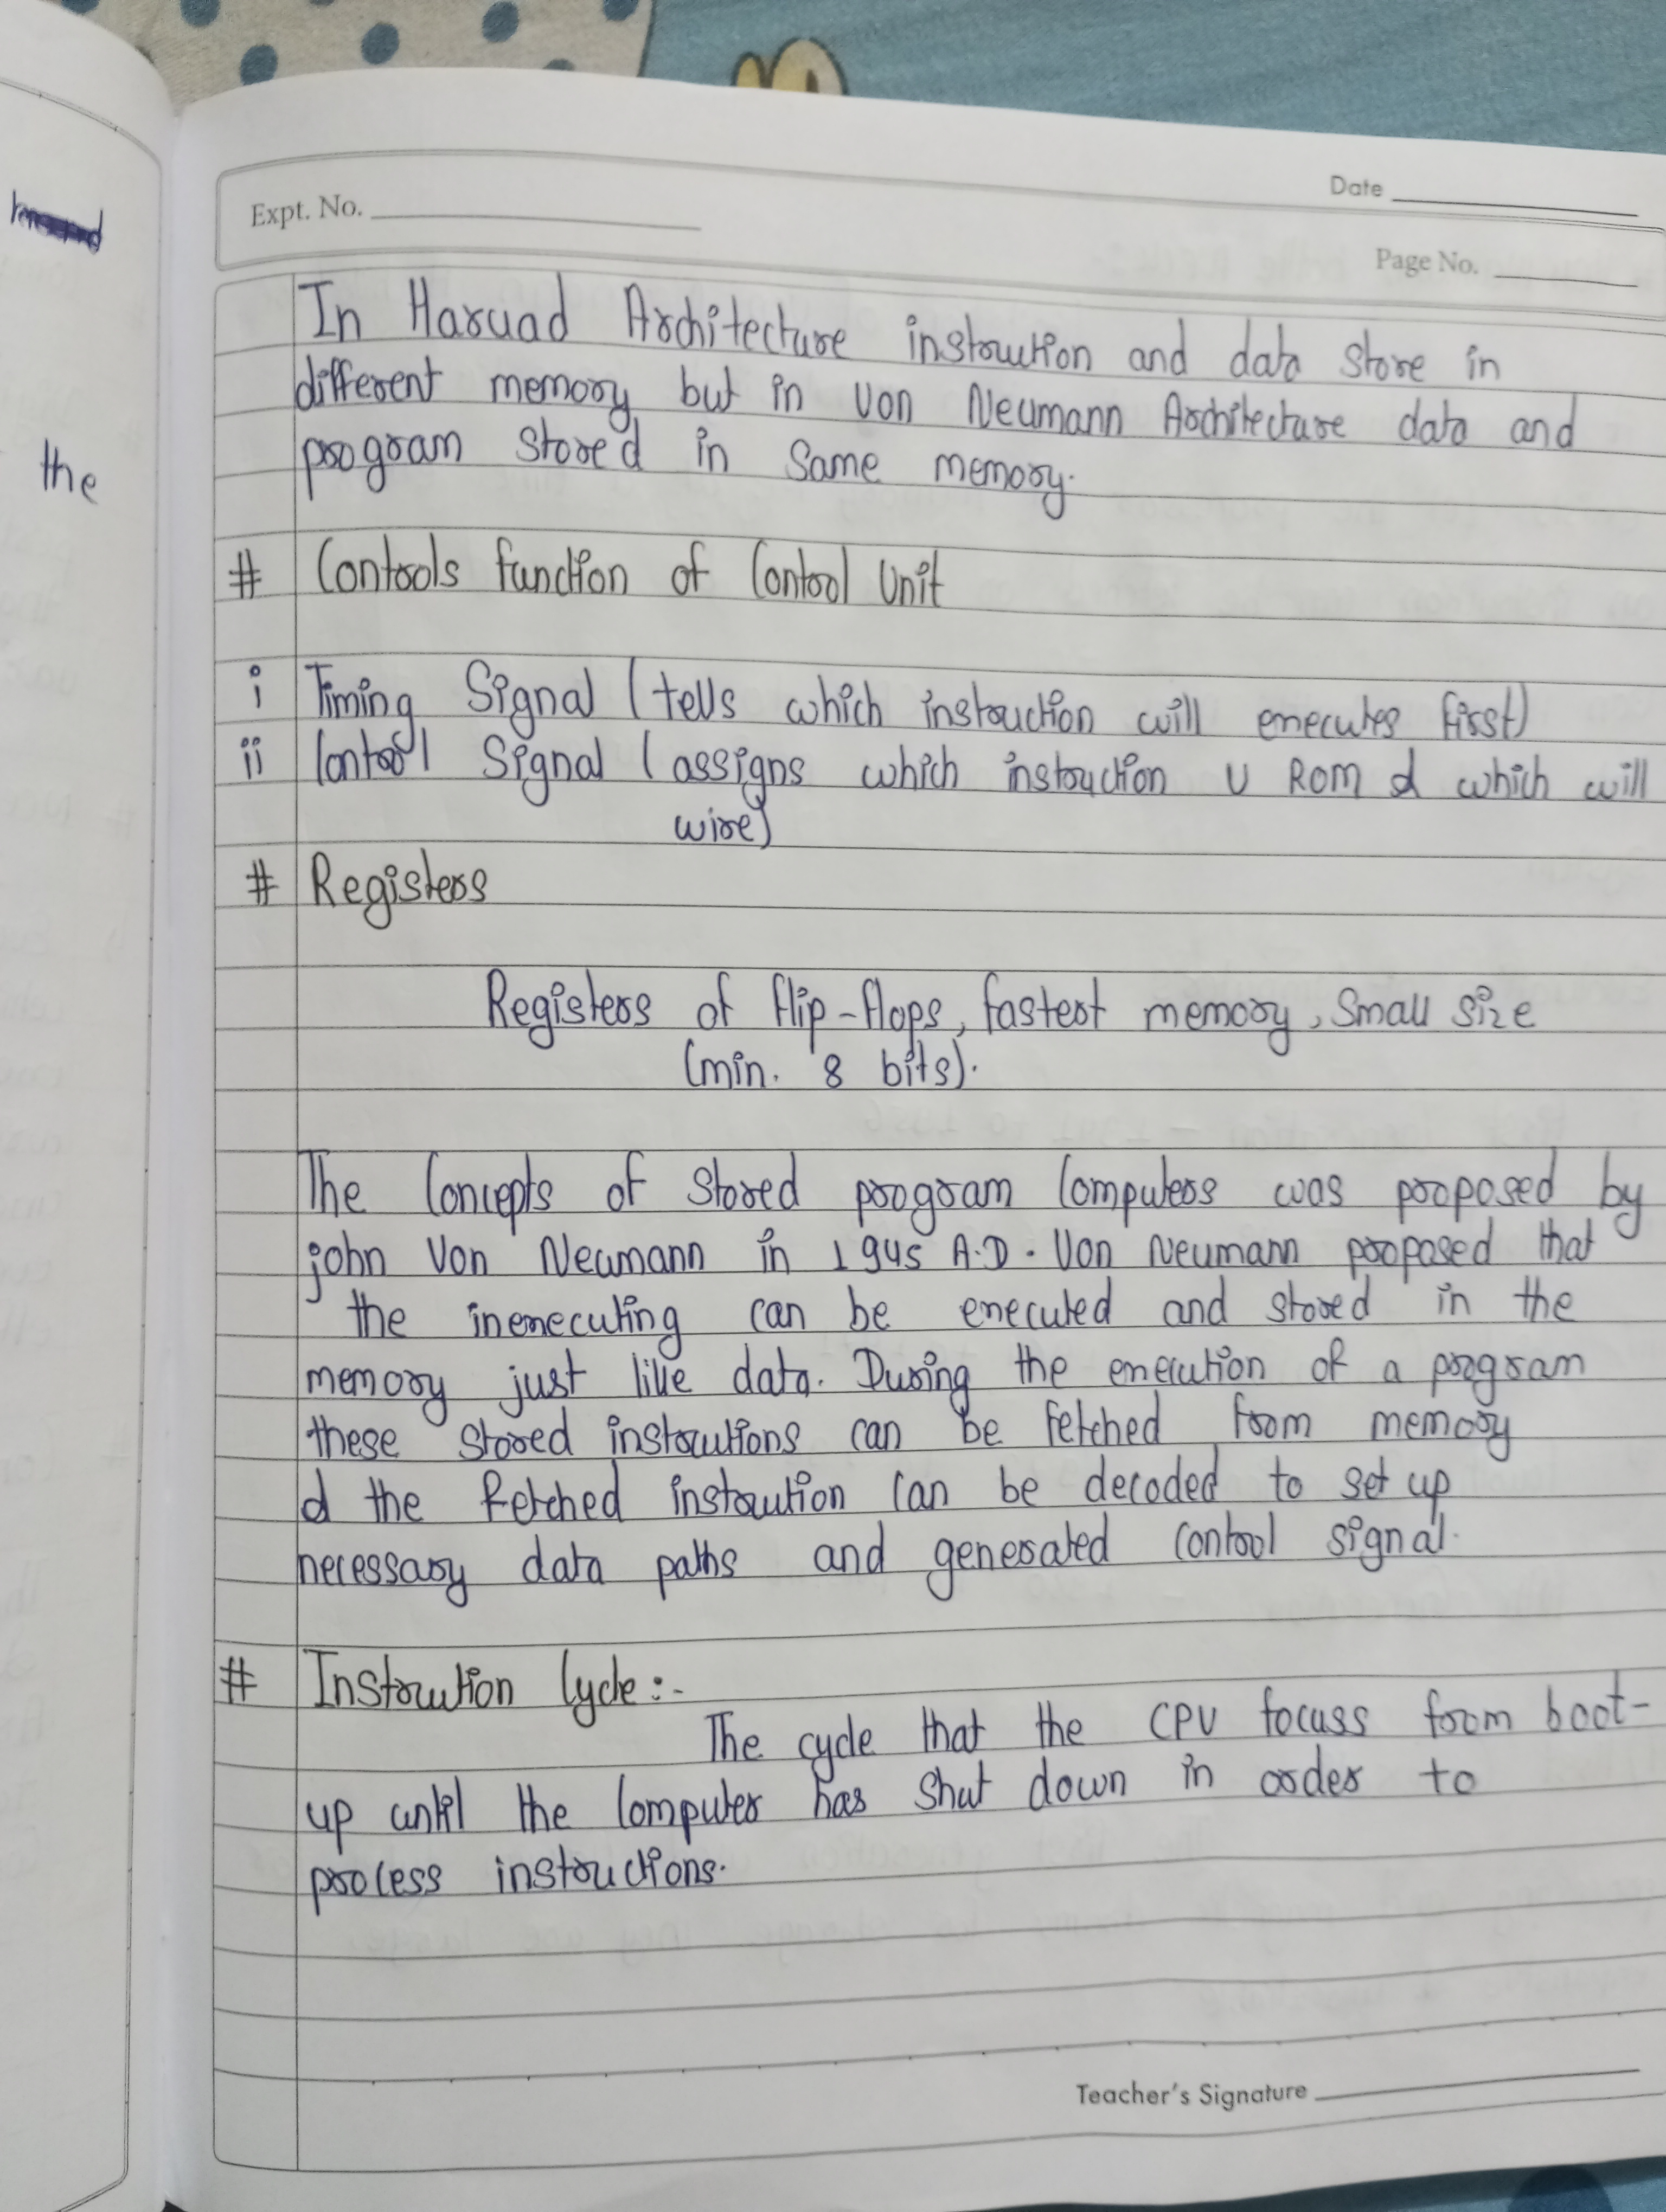 the
Expt. No.
Date
Page No.
In Haruad Architecture instruction and data store in
different memory but in Von Neumann Architecture data and
program stored in same memory.
# Controls function of Control Unit
i Timing Signal (tells which instruction will executes first)
ii Control Signal (assigns which instruction U ROM & which will
wire)
# Registers
Registers of flip-flops, fastest memory, small size
(min. 8 bits).
The Concepts of stored program Computers was proposed by
john Von Neumann in 1945 A.D. Von Neumann proposed that
the inexecuting can be executed and stored in the
memory just like data. During the execution of a program
these stored instructions can be fetched from memory
& the fetched instruction can be decoded to set up
necessary data paths and generated control signal.
# Instruction Cycle:-
The cycle that the CPU focuss from boot-
up until the Computer has shut down in order to
process instructions.
Teacher's Signature